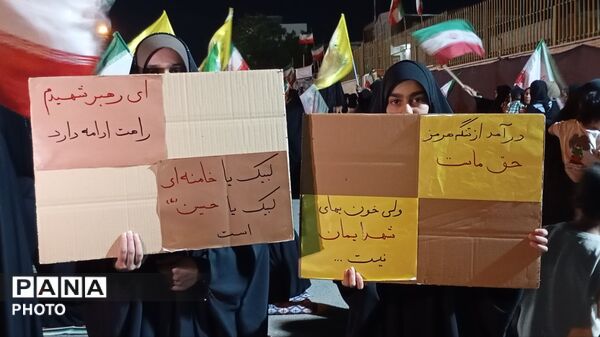 ای رهبر شهیدم
راهت ادامه دارد
لبیک یا خامنه‌ای
لبیک یا حسین (ع)
است
درآمد از تنگه هرمز
حق ماست
ولی خون بهای
شهدایمان
نیست ...
PANA
PHOTO